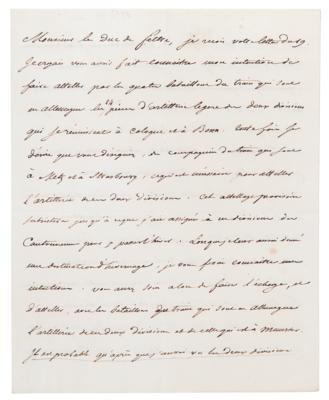 Monsieur le Duc de feltre, je reçois votre lettre du 29
je croyais vous avoir fait connaitre mon intention de
faire atteler par les quatre bataillons du train qui sont
en allemagne les pieces d'artillerie legere des deux divisions
qui se réunissent à Cologne et à Bonn. toutefois je
désire que vous dirigiez, de compagnies du train qui sont
à Metz et à Strasbourg, ce qui est nécessaire pour atteler
l'artillerie de ces deux divisions. cet attelage provisoire
subsistera jusqu'à ce que j'aie assigné à ces divisions des
Cantonnemens pour y passer l'hiver. Lorsque je leur aurai donné
une destination d'hivernage, je vous ferai connaitre mes
intentions. vous aurez soin alors de faire l'échange, et
d'atteler, avec les bataillons du train qui sont en allemagne
l'artillerie de ces deux divisions et de celle qui est à Munster.
Il est probable qu'après que j'aurai vu les deux divisions